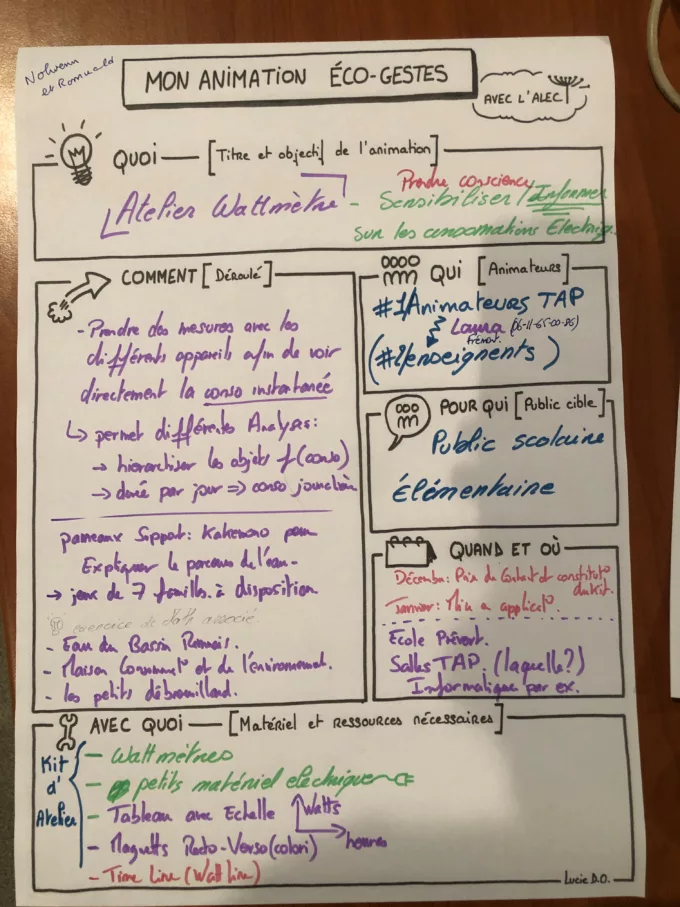 Nolwenn
et Romuald
MON ANIMATION ÉCO-GESTES
AVEC L'ALEC
QUOI — [Titre et objectif de l'animation]
Prendre conscience
Atelier Wattmètre - Sensibiliser / Informer
Sur les consomations Electriq.
COMMENT [Déroulé]
- Prendre des mesures avec les
différents appareils afin de voir
directement la conso instantanée
↳ permet différentes Analyses:
→ hiérarchiser les objets f(conso)
→ durée par jour => conso journalière
panneaux Support: Kakemono pour
Expliquer le parcours de l'eau-
→ jeux de 7 familles à disposition
exercice de Math associé.
- Eau du Bassin Rennais.
- Maison Consommat° et de l'environnement.
- les petits débrouillard.
QUI [Animateurs]
#1/Animateurs TAP
Laura
(#2/enseignents)
POUR QUI [Public cible]
Public scolaire
Élémentaire
QUAND ET OÙ
Décembre: Prise de Contact et constitut°
du Kit.
Janvier: Mise en applicat°.
Ecole Prévert.
Salles TAP. (laquelle?)
Informatique par ex.
AVEC QUOI — [Matériel et ressources nécessaires]
Kit
d'
Atelier
- Wattmètres
- petits matériel electrique
- Tableau avec Echelle Watts
heures
- Maquetts Recto-Verso (colori)
- Time Line (Watt line)
Lucie D.O.